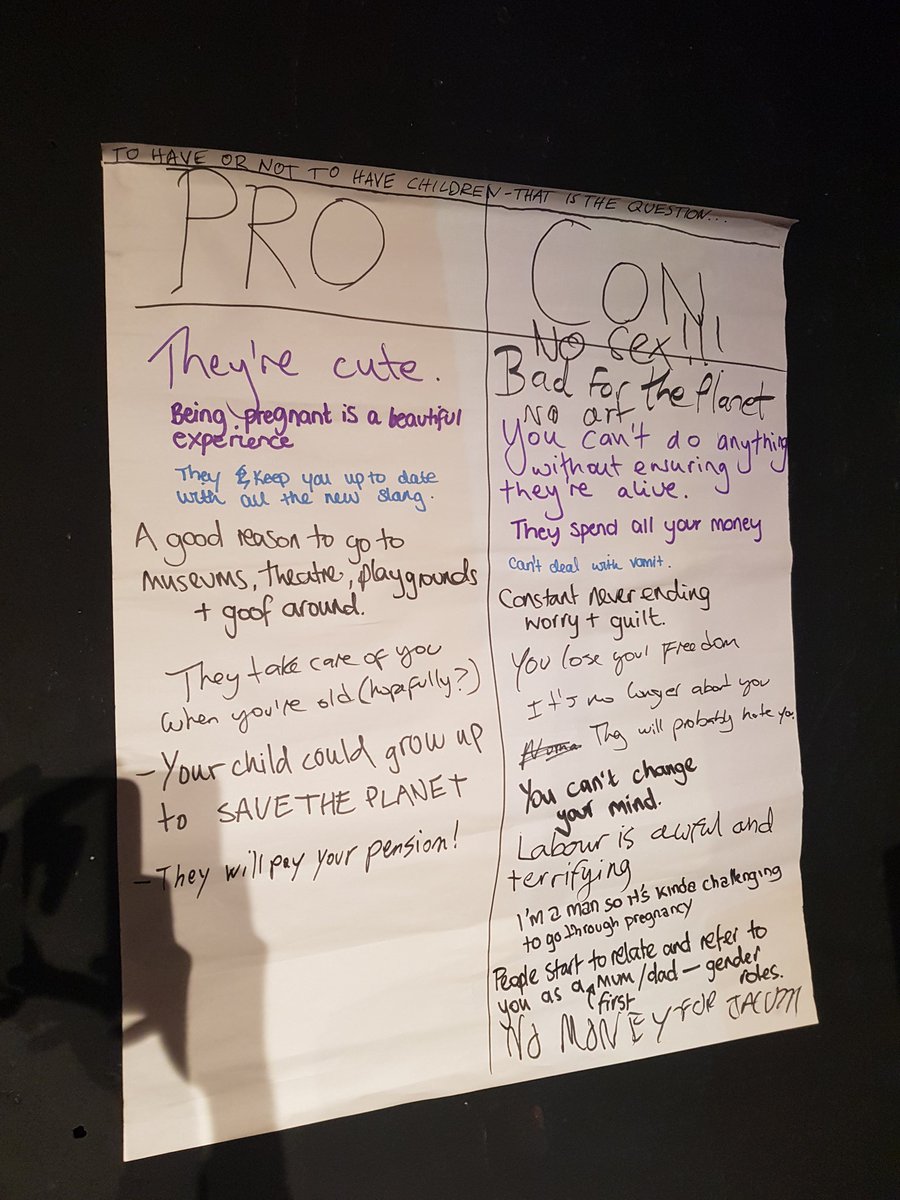 TO HAVE OR NOT TO HAVE CHILDREN - THAT IS THE QUESTION...
PRO
They're cute.
Being pregnant is a beautiful
experience
They keep you up to date
with all the new slang.
A good reason to go to
museums, theatre, playgrounds
+ goof around.
They take care of you
when you're old (hopefully?)
- Your child could grow up
to SAVE THE PLANET
- They will pay your pension!
CON
No sex!!!
Bad for the planet
No art
You can't do anything
without ensuring
they're alive.
They spend all your money
Can't deal with vomit.
Constant never ending
worry + guilt.
You lose your Freedom
It's no longer about you
They will probably hate you.
You can't change
your mind.
Labour is awful and
terrifying
I'm a man so it's kinda challenging
to go through pregnancy
People start to relate and refer to
you as a mum/dad - gender
first roles.
NO MONEY FOR